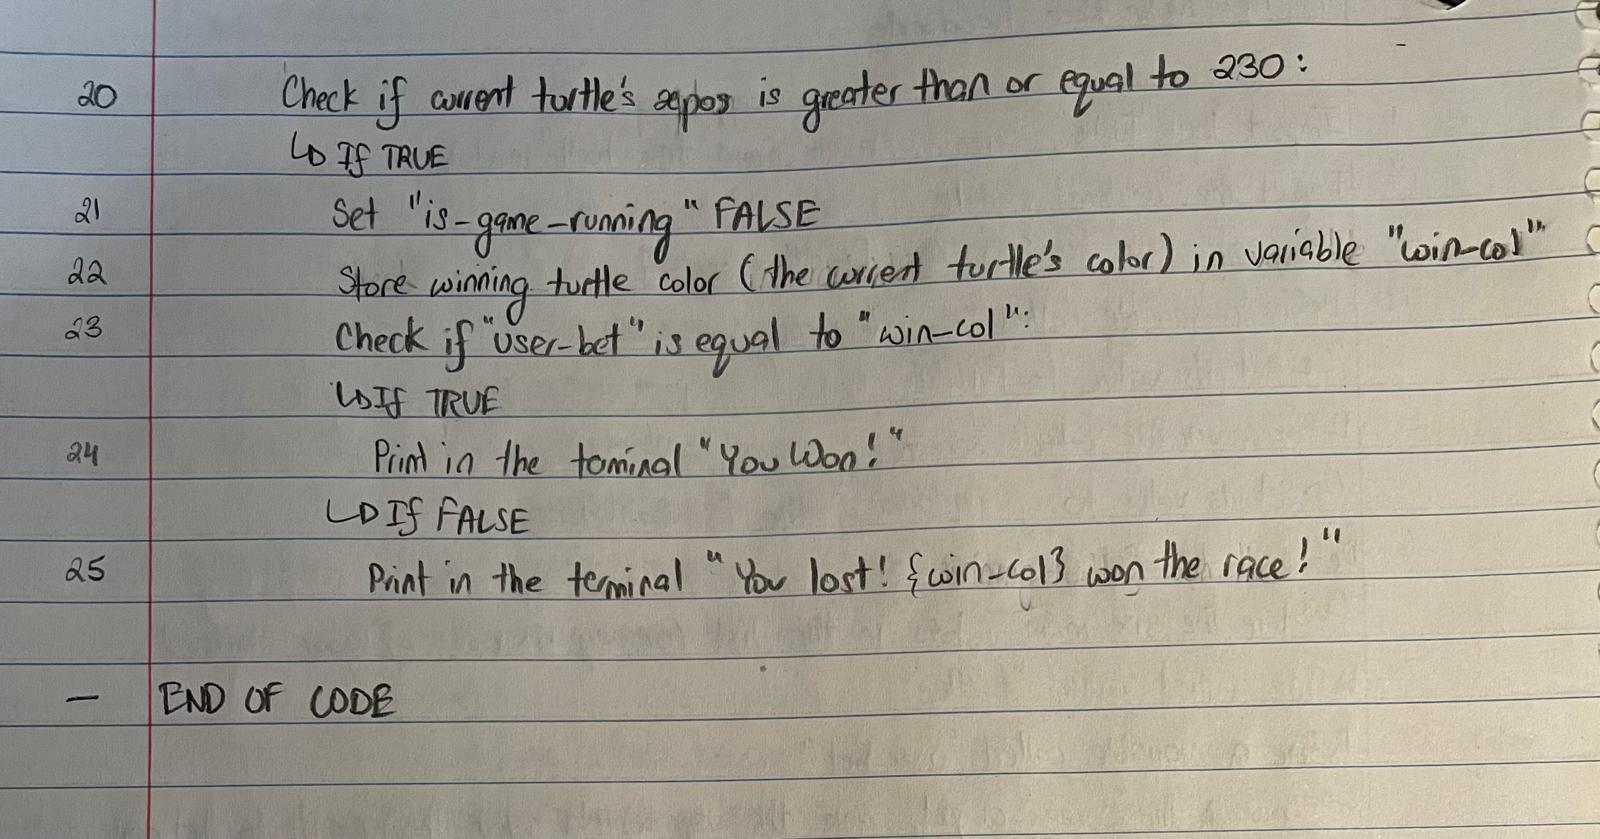 20 Check if current turtle's xpos is greater than or equal to 230:
↳ If TRUE
21 Set "is-game-running" FALSE
22 Store winning turtle color (the current turtle's color) in variable "win-col"
23 Check if "user-bet" is equal to "win-col":
↳ If TRUE
24 Print in the terminal "You Won!"
↳ If FALSE
25 Print in the terminal "You lost! {win-col} won the race!"
— END OF CODE